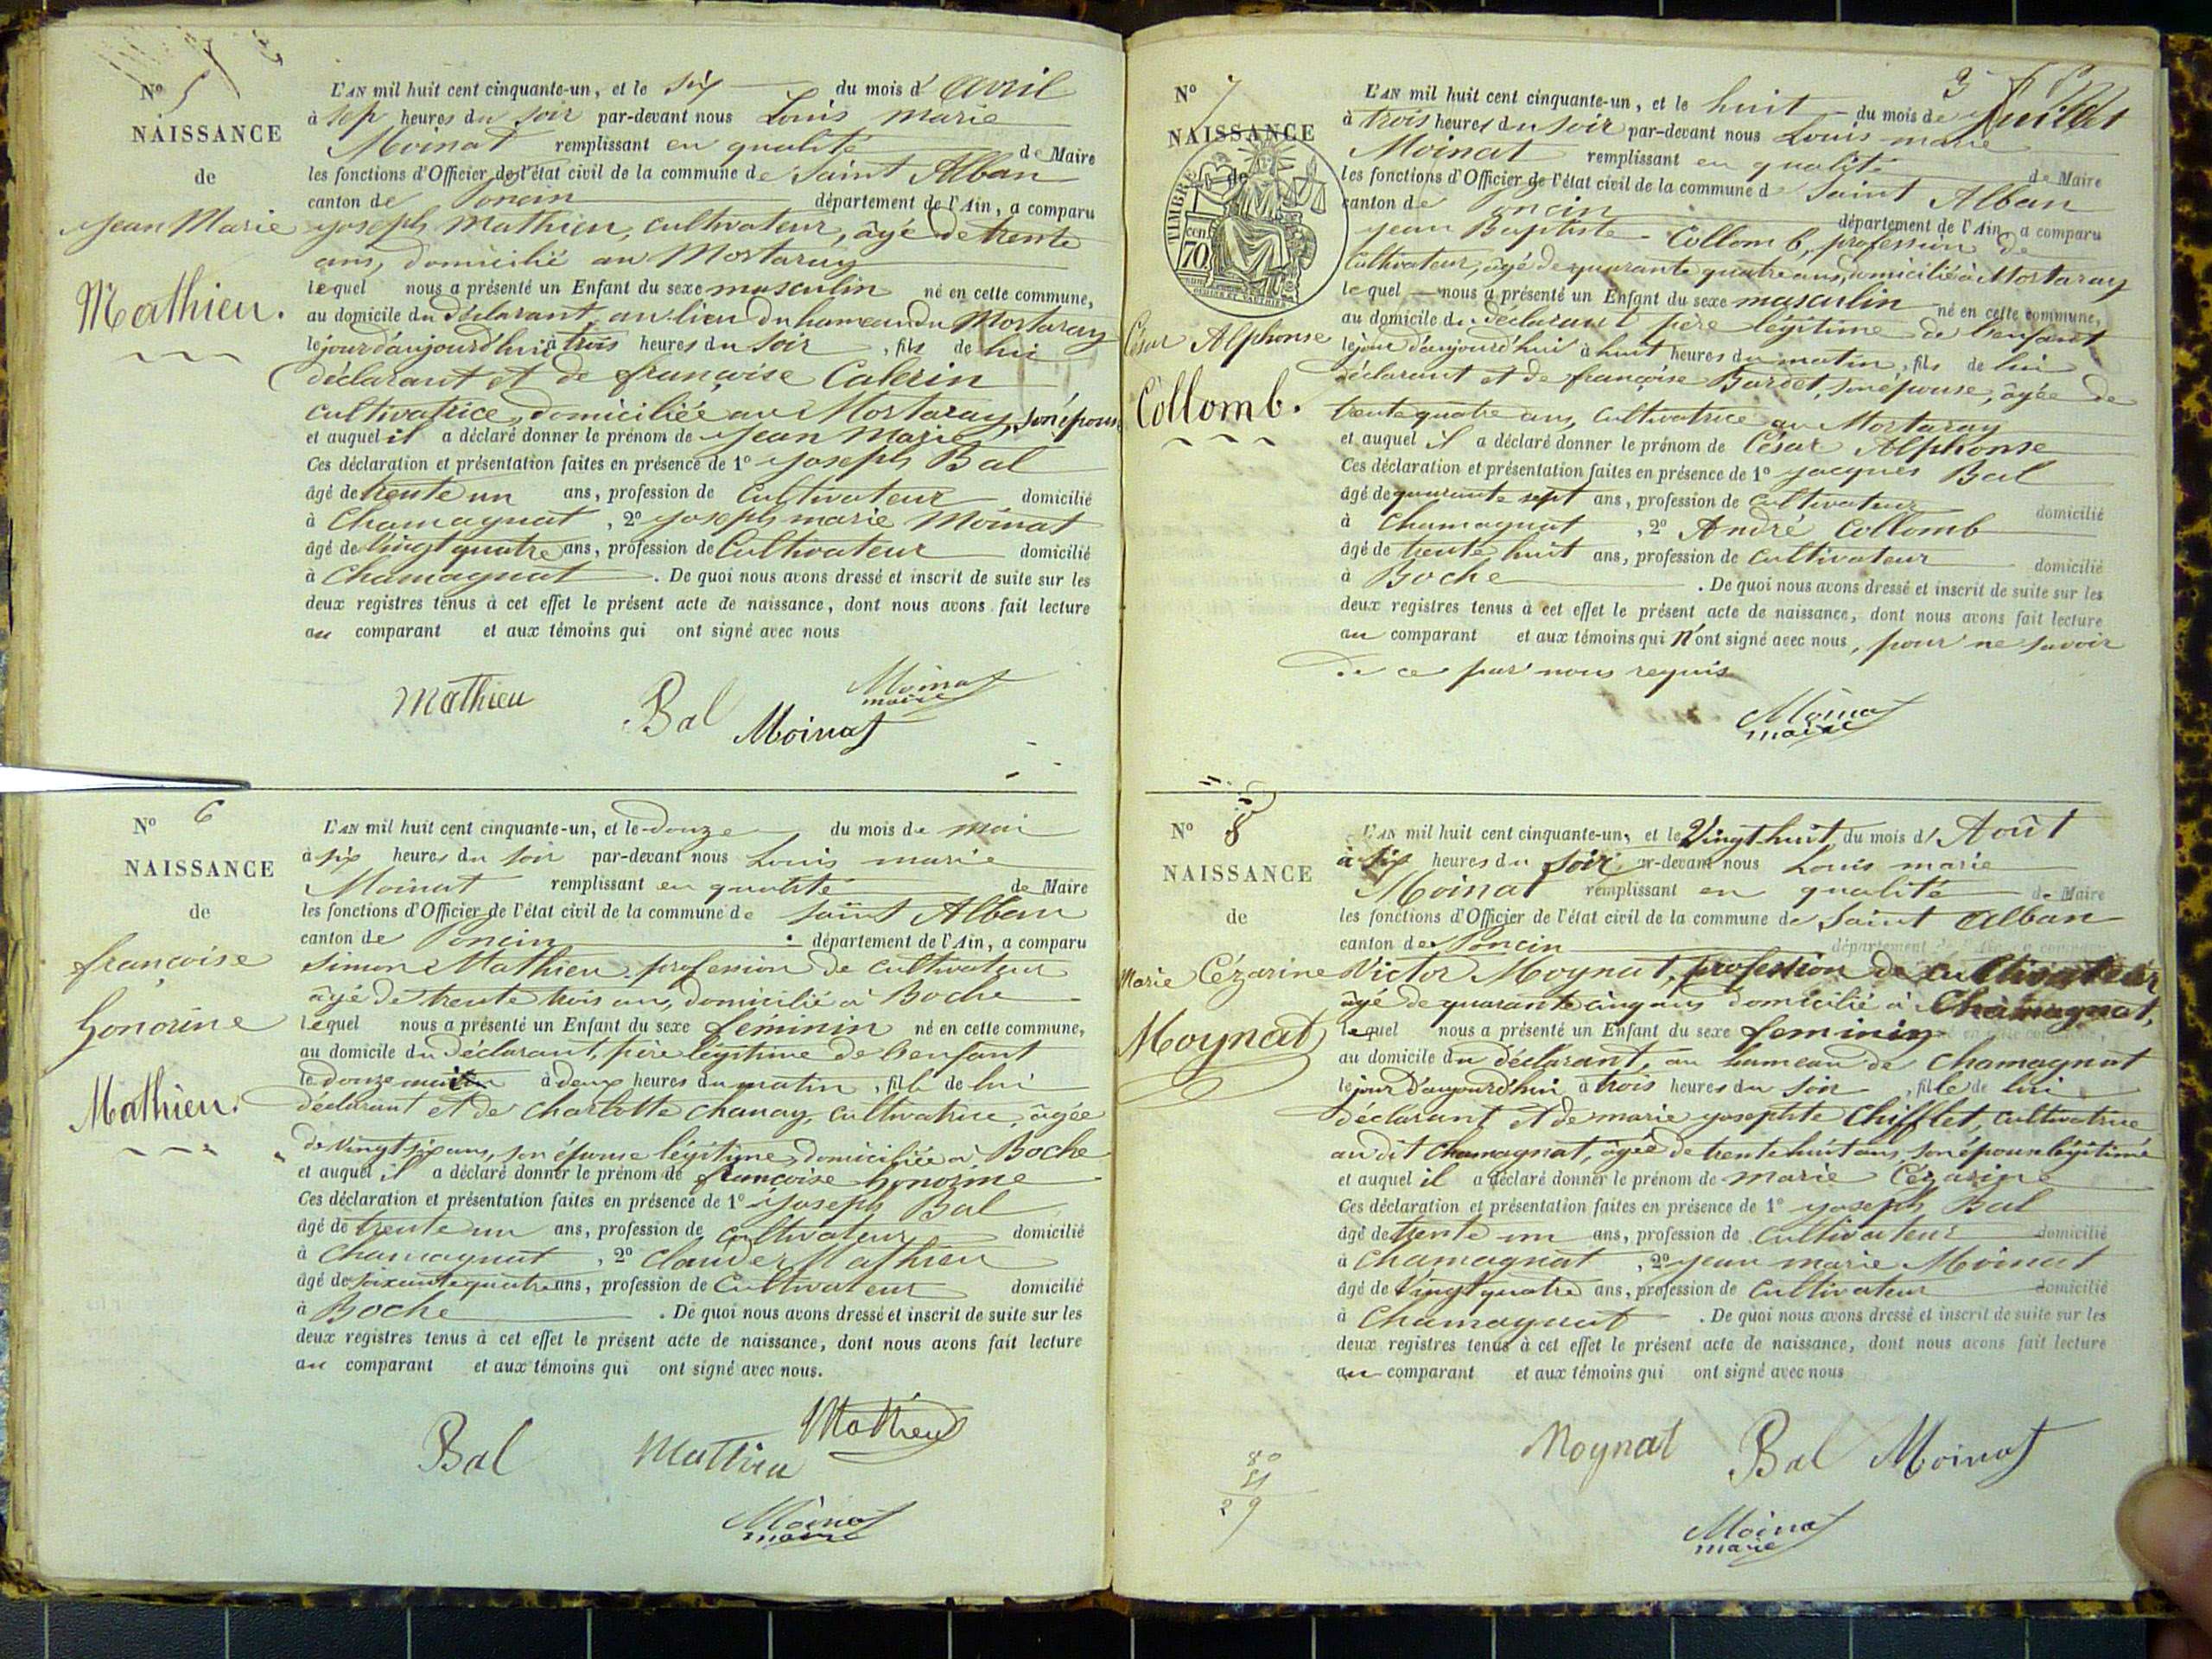 N° 5
NAISSANCE
de
Jean Marie
Mathieu.
L'AN mil huit cent cinquante-un, et le six du mois d' avril
à sep heures du soir par-devant nous Louis marie
Moinat remplissant en qualité de Maire
les fonctions d'Officier de l'état civil de la commune de Saint Alban
canton de Poncin département de l'Ain, a comparu
joseph Mathieu, cultivateur, âgé de trente
ans, domicilié au Mortaray
lequel nous a présenté un Enfant du sexe masculin né en cette commune,
au domicile du déclarant, au lieu du hameau du Mortaray
le jour d'aujourd'hui à trois heures du soir, fils de lui
déclarant et de françoise Calerin
cultivatrice, domiciliée au Mortaray, son épouse
et auquel il a déclaré donner le prénom de Jean Marie
Ces déclaration et présentation faites en présence de 1° joseph Bal
âgé de trente un ans, profession de Cultivateur domicilié
à Chamagnat, 2° joseph marie Moinat
âgé de vingt quatre ans, profession de Cultivateur domicilié
à Chamagnat. De quoi nous avons dressé et inscrit de suite sur les
deux registres tenus à cet effet le présent acte de naissance, dont nous avons fait lecture
au comparant et aux témoins qui ont signé avec nous
Mathieu Bal Moinat
Moinat
maire
N° 6
NAISSANCE
de
françoise
honorine
Mathieu.
L'AN mil huit cent cinquante-un, et le douze du mois de mai
à six heures du soir par-devant nous Louis marie
Moinat remplissant en qualité de Maire
les fonctions d'Officier de l'état civil de la commune de Saint Alban
canton de Poncin département de l'Ain, a comparu
Simon Mathieu, profession de cultivateur
âgé de trente trois ans, domicilié à Boche
lequel nous a présenté un Enfant du sexe féminin né en cette commune,
au domicile du déclarant, père légitime de l'enfant
le douze à deux heures du matin, fille de lui
déclarant et de Charlotte Chanay, cultivatrice, âgée
de vingt six ans, son épouse légitime, domiciliée à Boche
et auquel il a déclaré donner le prénom de françoise honorine
Ces déclaration et présentation faites en présence de 1° joseph Bal
âgé de trente un ans, profession de cultivateur domicilié
à Chamagnat, 2° Claude Mathieu
âgé de soixante quatre ans, profession de Cultivateur domicilié
à Boche. De quoi nous avons dressé et inscrit de suite sur les
deux registres tenus à cet effet le présent acte de naissance, dont nous avons fait lecture
au comparant et aux témoins qui ont signé avec nous.
Bal Mathieu Mathieu
Moinat
maire
N° 7
NAISSANCE
de
TIMBRE
cen
70
César Alphonse
Collomb.
L'AN mil huit cent cinquante-un, et le huit du mois de Juillet
à trois heures du soir par-devant nous Louis marie
Moinat remplissant en qualité de Maire
les fonctions d'Officier de l'état civil de la commune de Saint Alban
canton de Poncin département de l'Ain, a comparu
jean Baptiste Collomb, profession de
Cultivateur, âgé de quarante quatre ans, domicilié à Mortaray
lequel nous a présenté un Enfant du sexe masculin né en cette commune,
au domicile du déclarant père légitime de l'enfant
le jour d'aujourd'hui à huit heures du matin, fils de lui
déclarant et de françoise Bardet, son épouse, âgée de
trente quatre ans, cultivatrice au Mortaray
et auquel il a déclaré donner le prénom de César Alphonse
Ces déclaration et présentation faites en présence de 1° jacques Bal
âgé de quarante sept ans, profession de cultivateur domicilié
à Chamagnat, 2° André Collomb
âgé de trente huit ans, profession de cultivateur domicilié
à Boche. De quoi nous avons dressé et inscrit de suite sur les
deux registres tenus à cet effet le présent acte de naissance, dont nous avons fait lecture
au comparant et aux témoins qui n'ont signé avec nous, pour ne savoir
de ce par nous requis
Moinat
maire
N° 8
NAISSANCE
de
Marie Cézarine
Moynat
L'AN mil huit cent cinquante-un, et le Vingt huit du mois d' Août
à six heures du soir par-devant nous Louis marie
Moinat remplissant en qualité de Maire
les fonctions d'Officier de l'état civil de la commune de Saint Alban
canton de Poncin département de l'Ain, a comparu
Victor Moynat, profession de cultivateur
âgé de quarante cinq ans domicilié à Chamagnat,
lequel nous a présenté un Enfant du sexe feminin né en cette commune,
au domicile du déclarant, au hameau de Chamagnat
le jour d'aujourd'hui à trois heures du soir, fille de lui
déclarant et de marie josephte Chifflet, cultivatrice
au dit Chamagnat, âgée de trente huit ans, son épouse légitime
et auquel il a déclaré donner le prénom de marie Cézarine
Ces déclaration et présentation faites en présence de 1° joseph Bal
âgé de trente un ans, profession de Cultivateur domicilié
à Chamagnat, 2° jean marie Moinat
âgé de Vingt quatre ans, profession de cultivateur domicilié
à Chamagnat. De quoi nous avons dressé et inscrit de suite sur les
deux registres tenus à cet effet le présent acte de naissance, dont nous avons fait lecture
au comparant et aux témoins qui ont signé avec nous
Moynat Bal Moinat
Moinat
maire
80
51
29